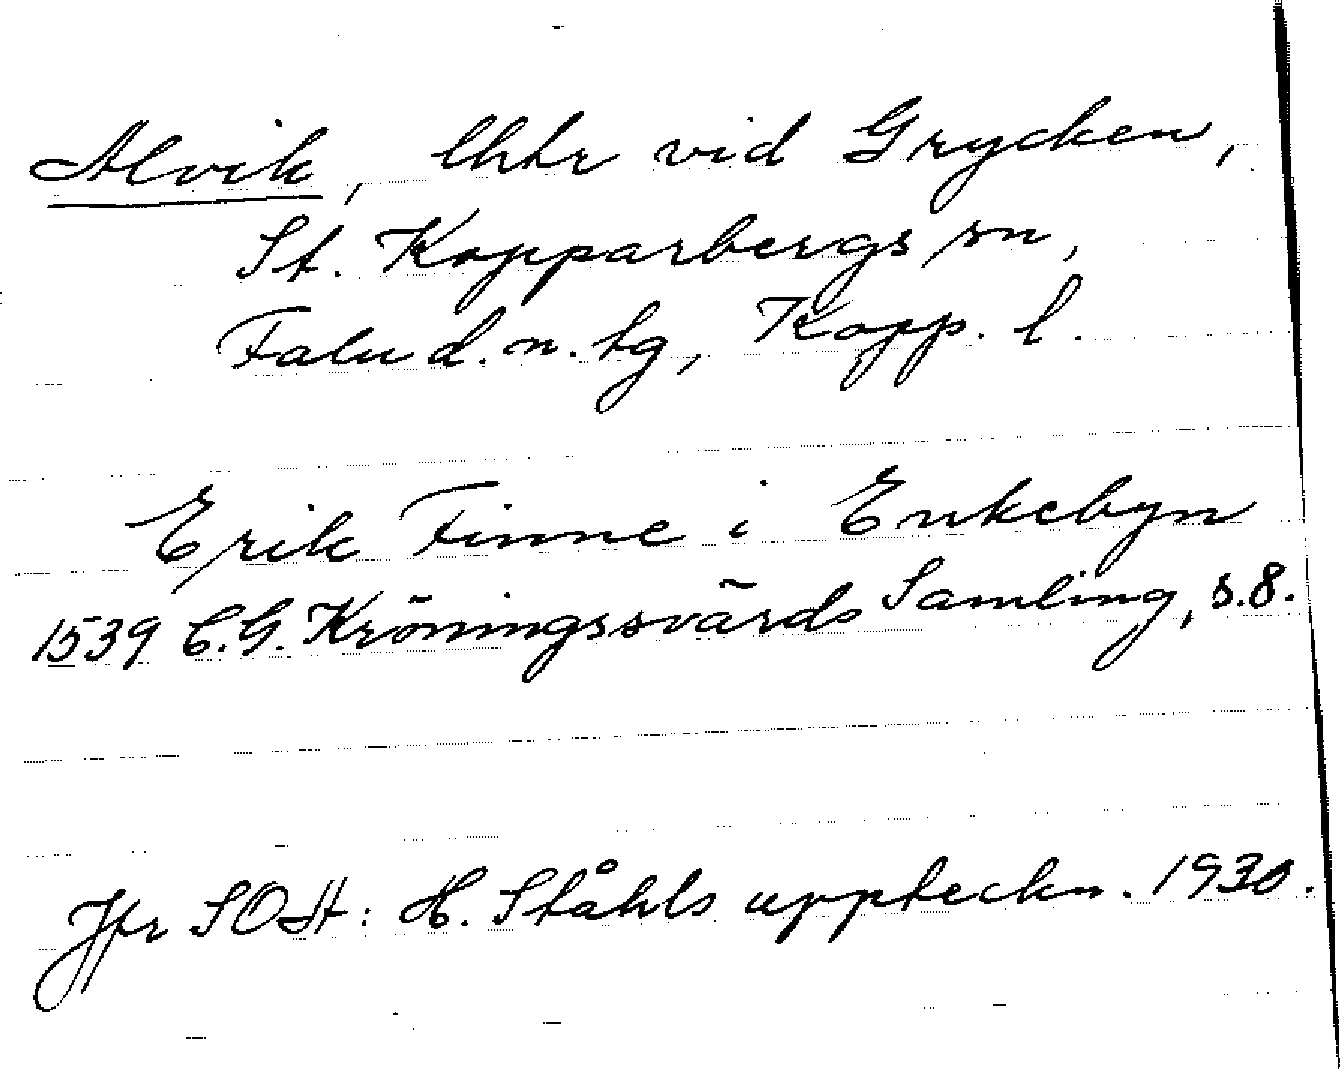 Alvik, lhtr vid Grycken,
St. Kopparbergs sn,
Falu d. n. tg, Kopp. l.
Erik Finne i Enkebyn
1539 C.G. Kröningssvärds Samling, s.8.
Jfr SOH: H. Ståhls uppteckn. 1930.